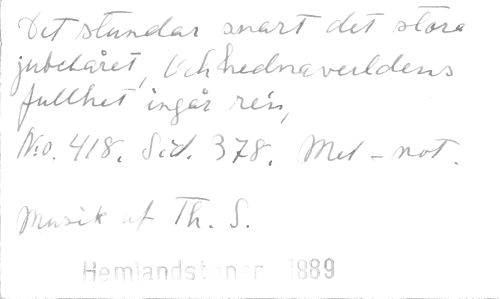 Det stundar snart det stora
jubelåret, Och hednaverldens
fullhet ingår ren,
No. 418. Sid. 378. Mel-not.
Musik af Th. S.
Hemlandstoner 1889